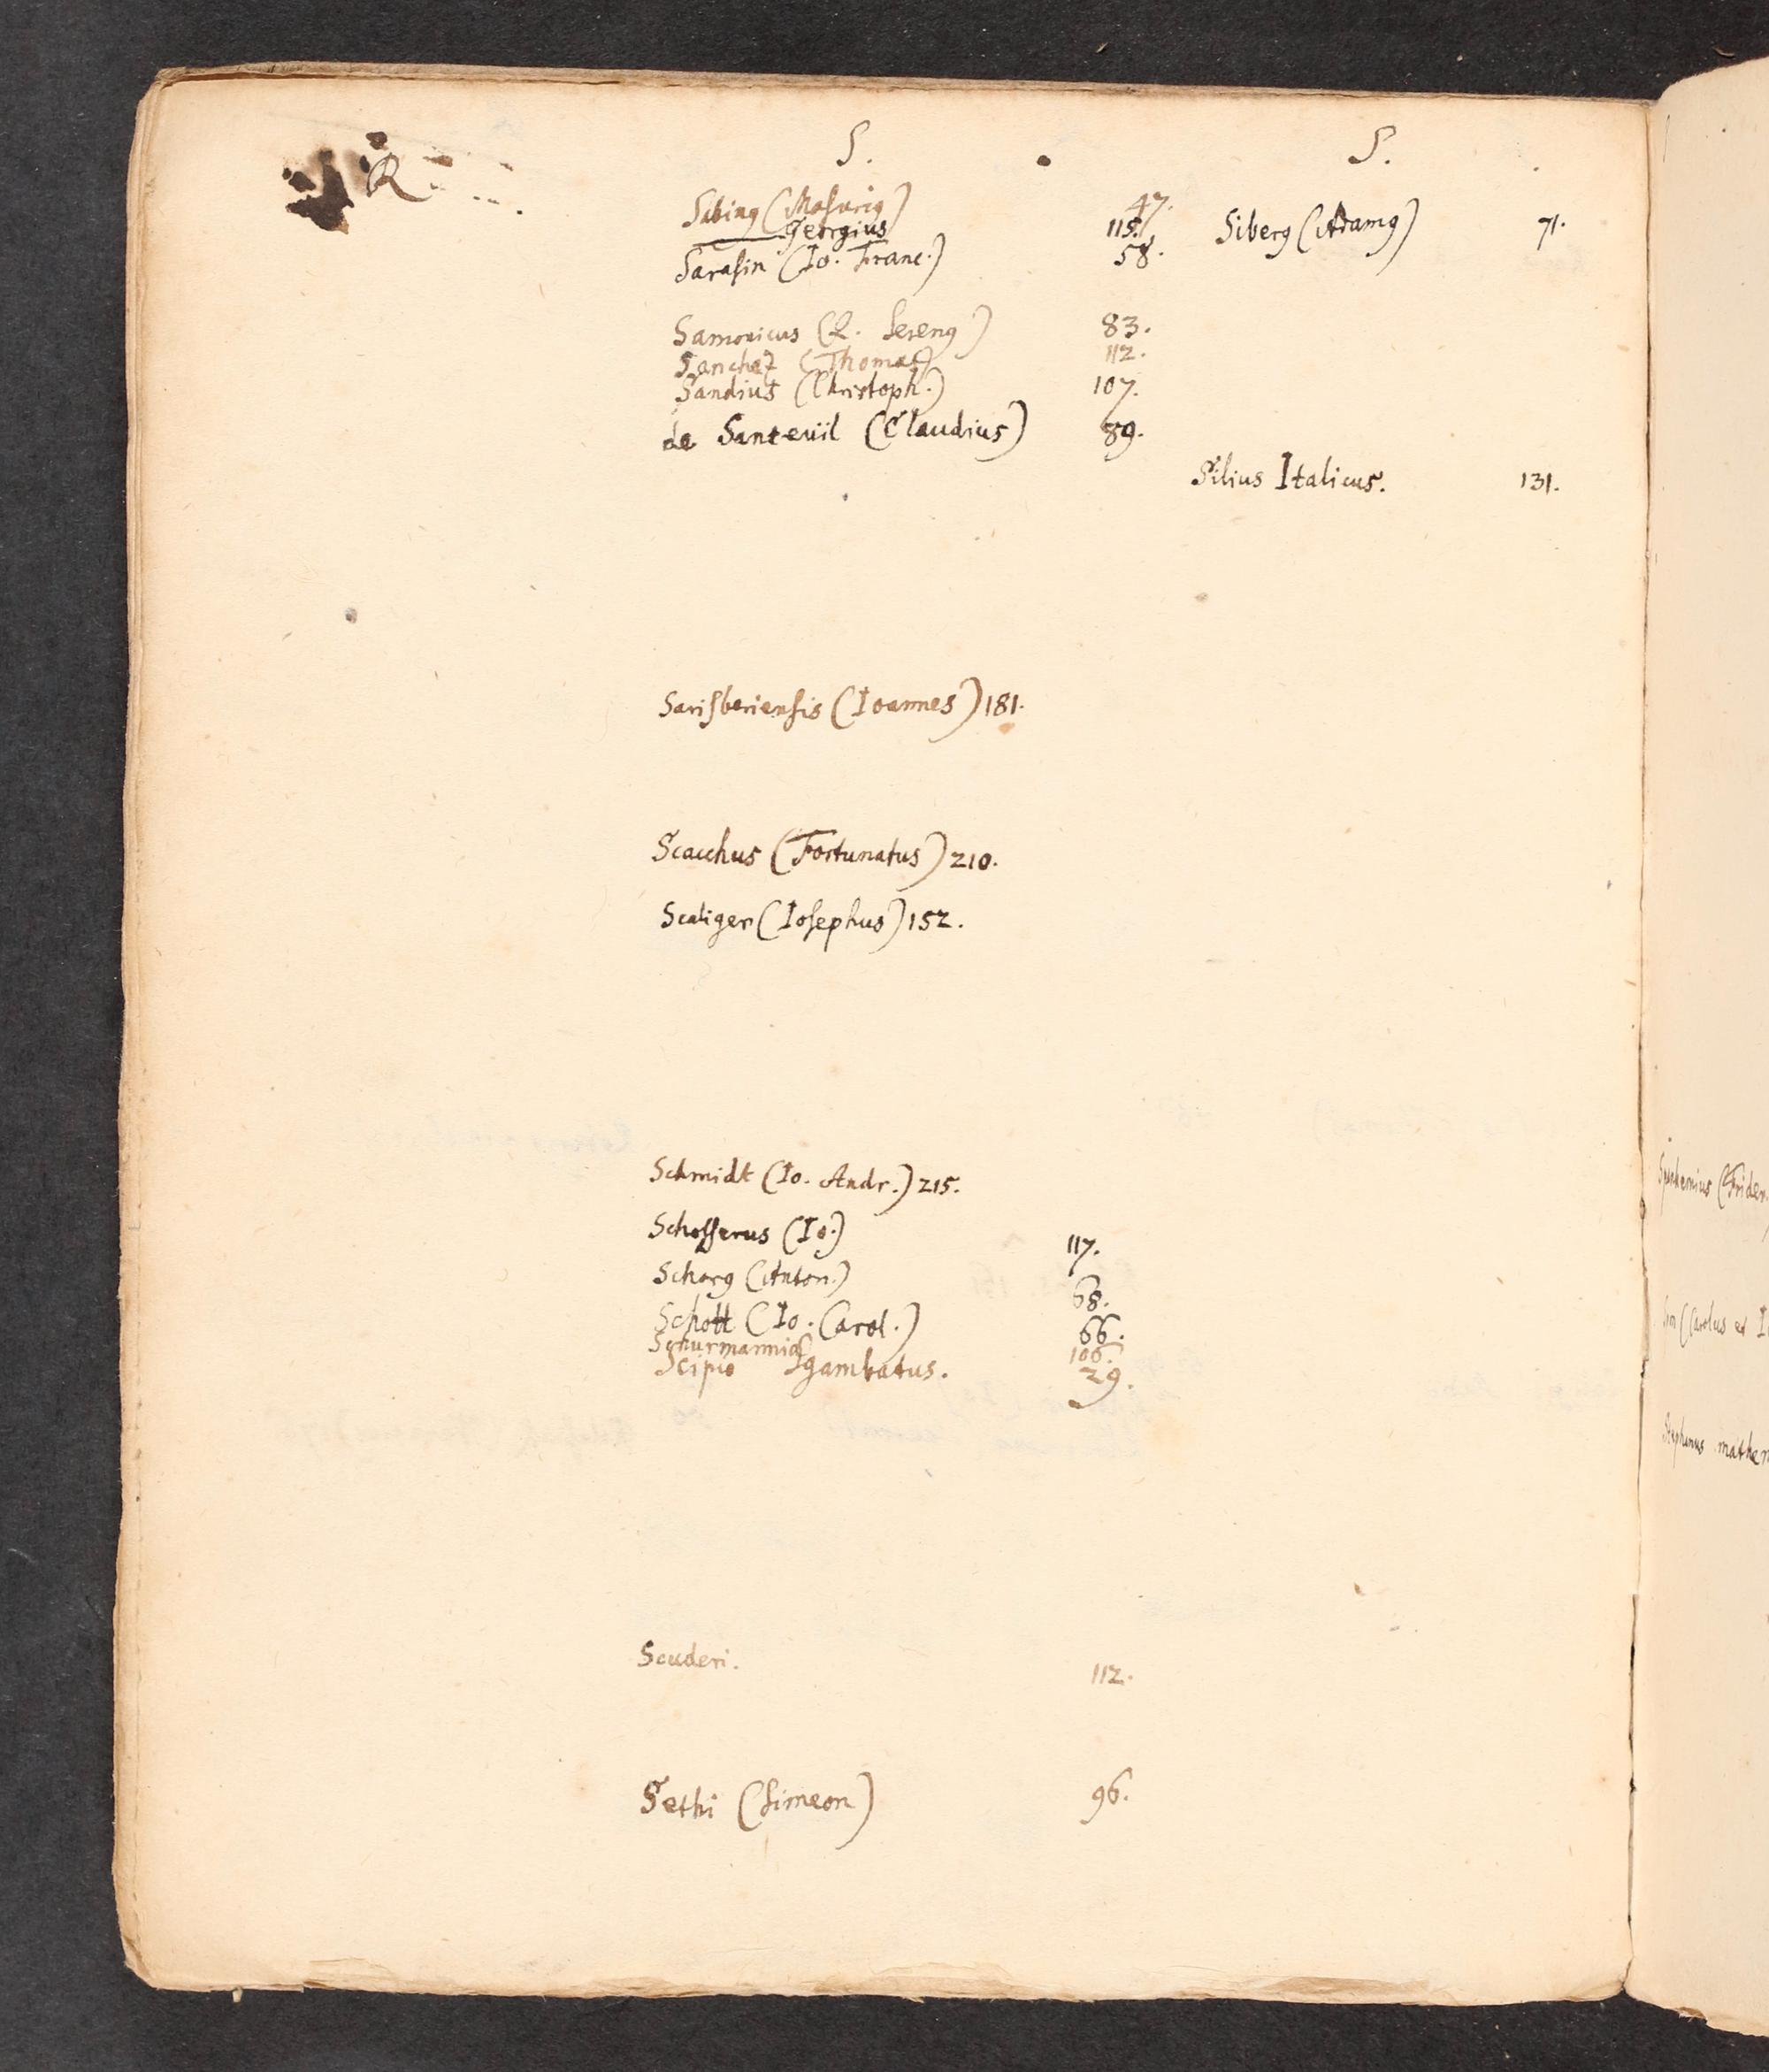 R.
S.
Sabinꝯ (Masuriꝯ) 47.
——— Georgius 115.
Sarasin (Io. Franc.) 58.
Samonicus (Q. Serenꝯ) 83.
Sanchez (Thomas) 112.
Sandius (Christoph.) 107.
de Santeüil (Claudius) 89.
Sarisberiensis (Ioannes) 181.
Scacchus (Fortunatus) 210.
Scaliger (Iosephus) 152.
Schmidt (Io. Andr.) 215.
Schosserus (Io.) 117.
Schorꝯ (Anton.) 68.
Schott (Io. Carol.) 66.
Schurmannia 106.
Scipio Sgambatus. 29.
Scuderi. 112.
Sethi (Simeon) 96.
S.
Siberꝯ (Adamꝯ) 71.
Silius Italicus. 131.
Spanhemius (Frider.
(Carolus et
Stephanus mathem